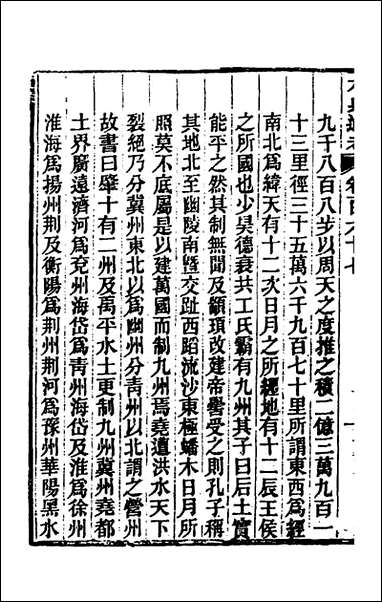 卷百六十七
九千八百八步以周天之度推之積二億三萬九百一
十三里徑三十五萬六千九百七十里所謂東西爲經
南北爲緯天有十二次日月之所經地有十二辰王侯
之所國也少昊德衰共工氏霸有九州其子曰后土實
能平之然其制無聞及顓頊改建帝嚳受之則孔子稱
其地北至幽陵南暨交趾西蹈流沙東極蟠木日月所
照莫不底屬是以建萬國而制九州焉堯遭洪水天下
裂絕乃分冀州東北以爲幽州分青州以北謂之營州
故書曰肇十有二州及禹平水土更制九州冀州堯都
土界廣遠濟河爲兗州海岱爲青州海岱及淮爲徐州
淮海爲揚州荆及衡陽爲荆州荆河爲豫州華陽黑水